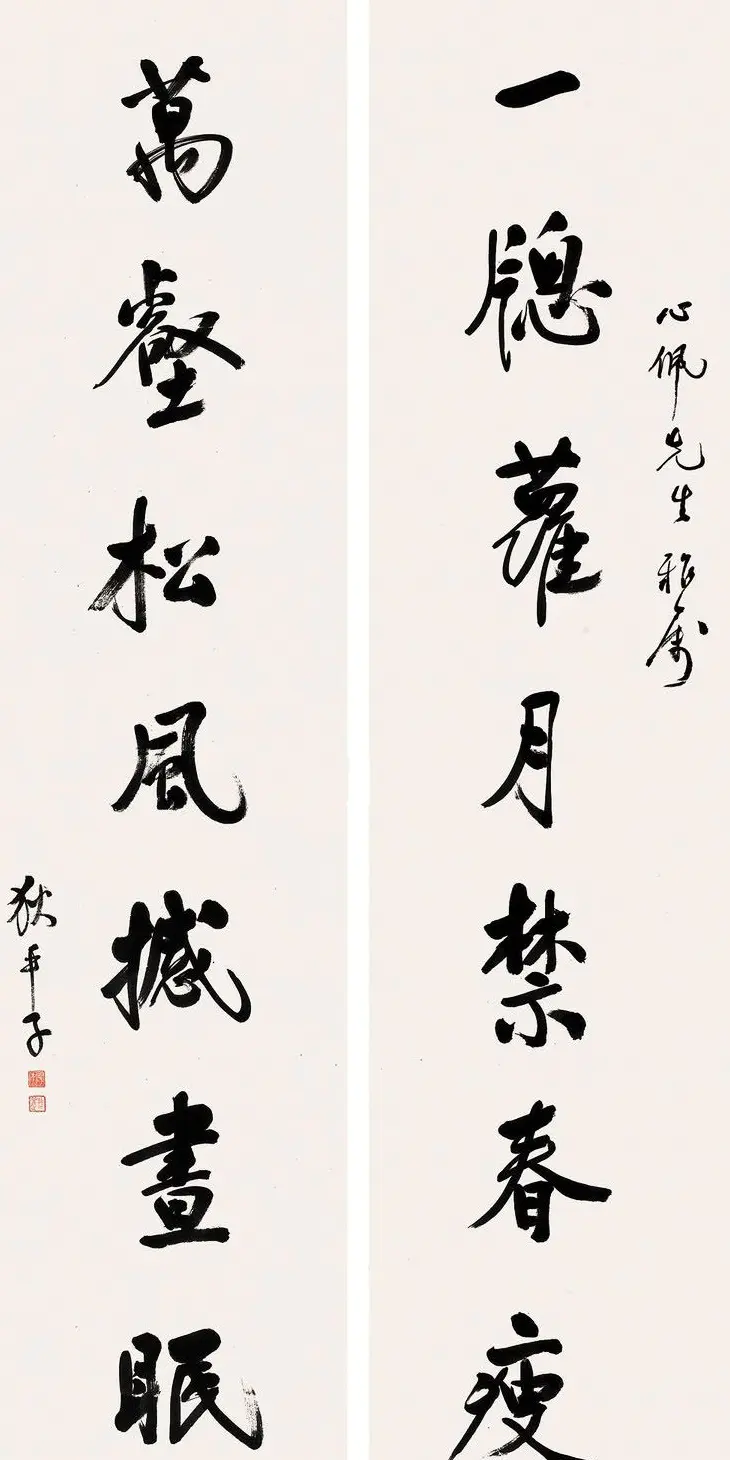 心佩先生雅屬
一牕蘿月禁春瘦
萬壑松風撼晝眠
狄平子